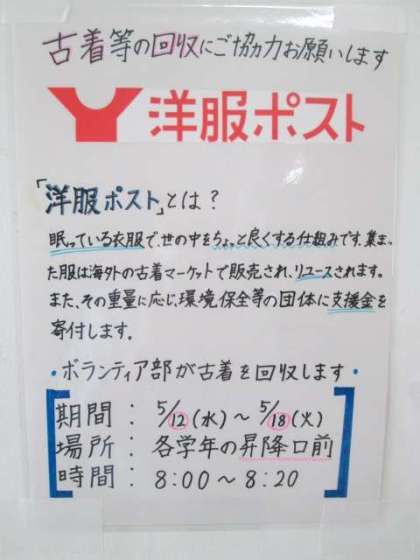 古着等の回収にご協力お願いします
洋服ポスト
「洋服ポスト」とは?
眠っている衣服で、世の中をちょっと良くする仕組みです。集まっ
た服は海外の古着マーケットで販売され、リユースされます。
また、その重量に応じ、環境保全等の団体に支援金を
寄付します。
・ボランティア部が古着を回収します・
期間:5/12(水)~5/18(火)
場所:各学年の昇降口前
時間:8:00~8:20